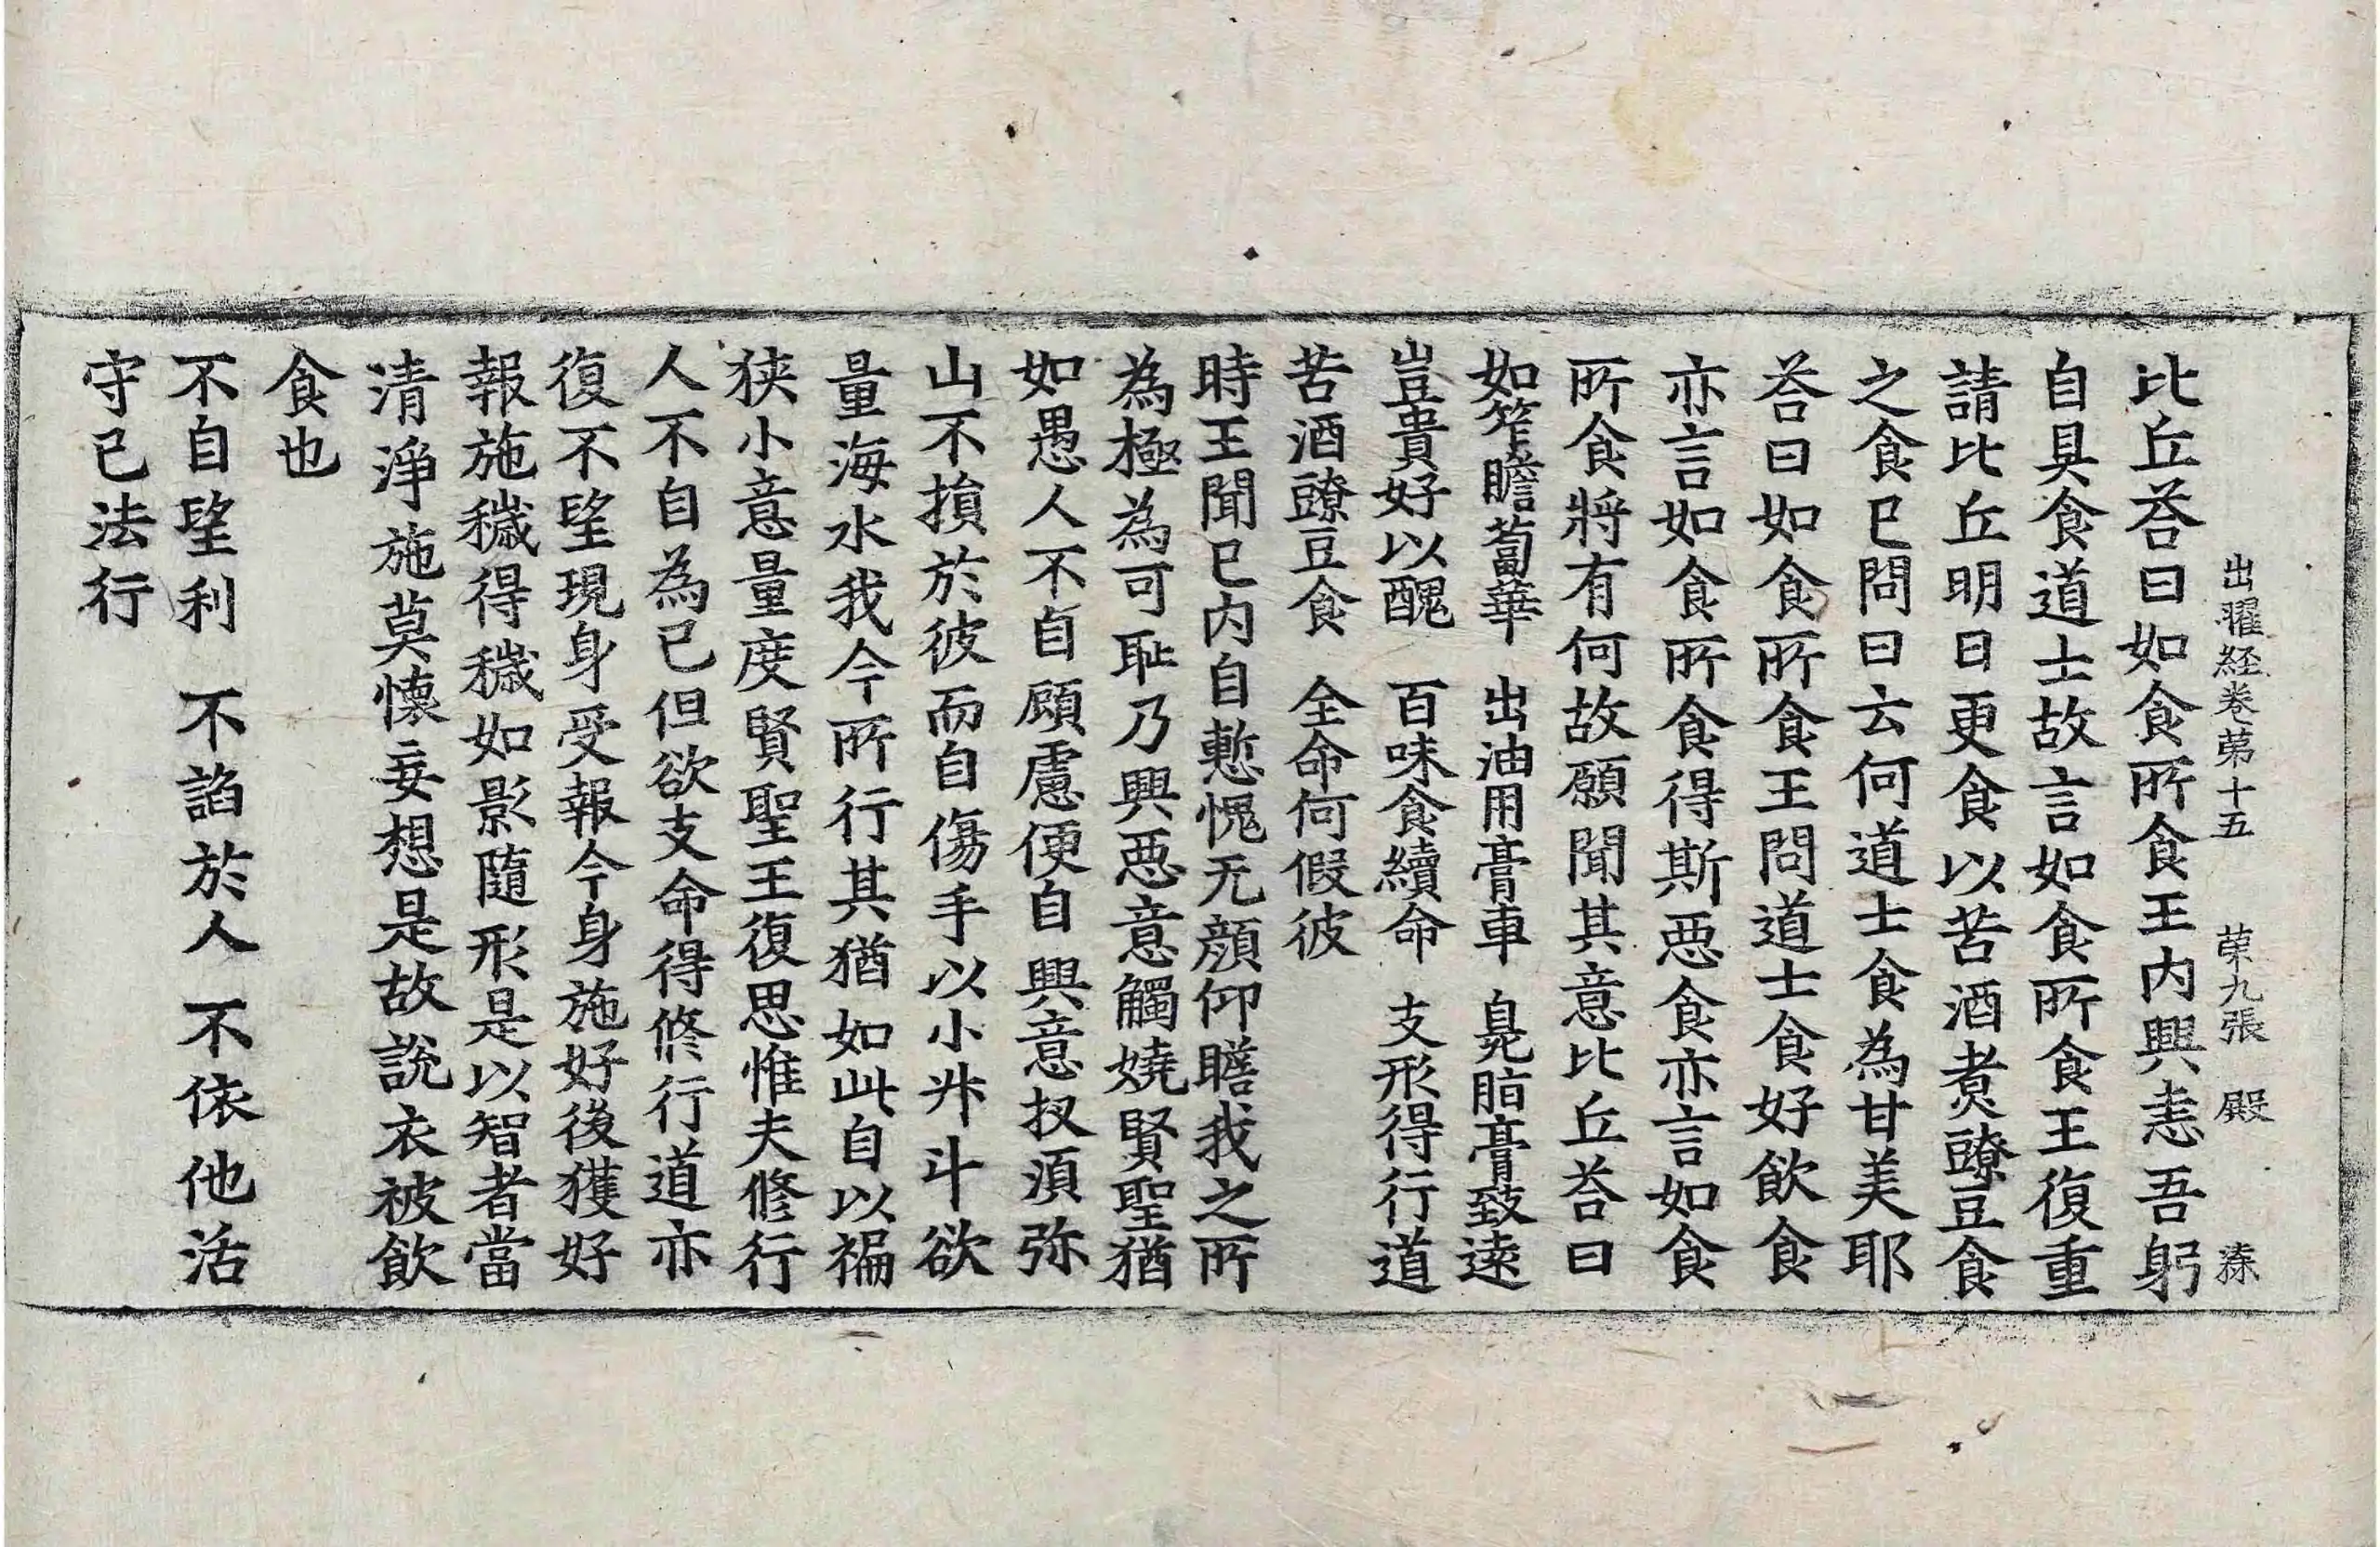 出曜経卷苐十五 苐九張 殿
比丘荅曰如食所食王内興恚吾躬
自具食道士故言如食所食王復重
請比丘明日更食以苦酒煮䝁豆食
之食已問曰云何道士食為甘美耶
荅曰如食所食王問道士食好飲食
亦言如食所食得斯惡食亦言如食
所食將有何故願聞其意比丘荅曰
如笮瞻蔔華 出油用膏車 臰脂膏致遠
豈貴好以醜 百味食續命 支形得行道
苦酒䝁豆食 全命何假彼
時王聞已内自慙愧无顔仰瞻我之所
為極為可恥乃興惡意觸嬈賢聖猶
如愚人不自顧慮便自興意扠須弥
山不損於彼而自傷手以小升斗欲
量海水我今所行其猶如此自以褊
狭小意量度賢聖王復思惟夫修行
人不自為己但欲支命得修行道亦
復不望現身受報今身施好後獲好
報施穢得穢如影隨形是以智者當
清淨施莫懷妄想是故說衣被飲
食也
不自望利 不諂於人 不依他活
守已法行